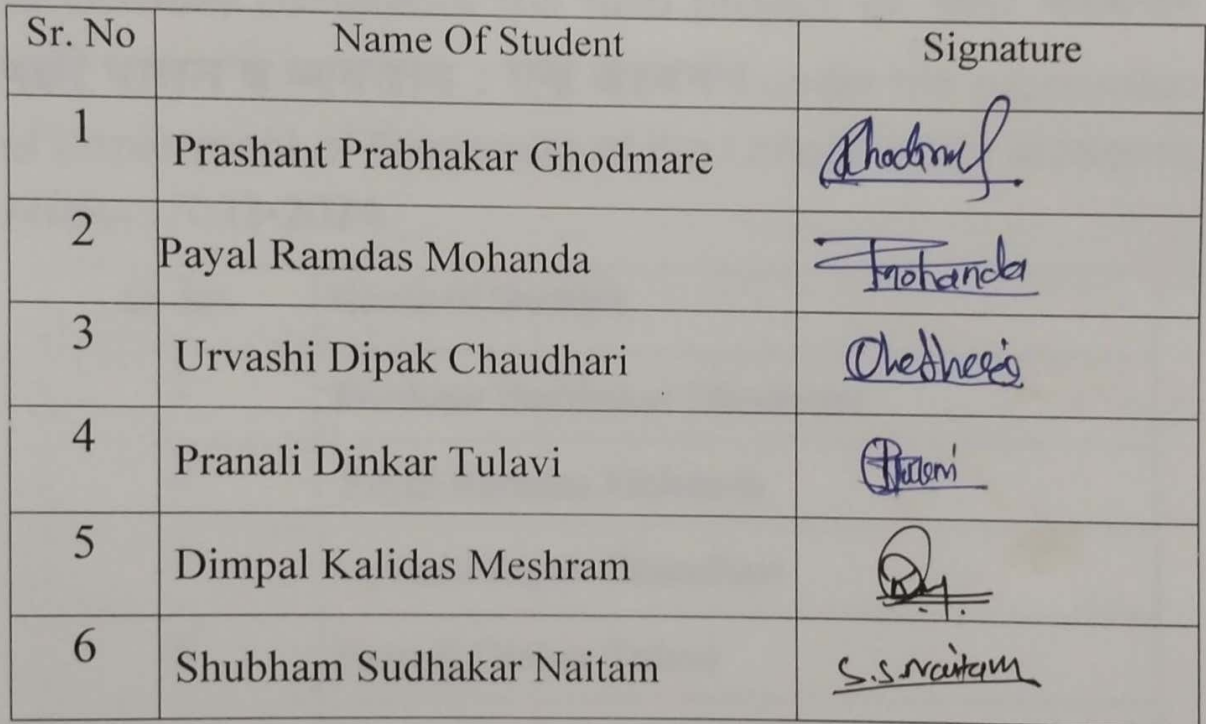 Sr. No Name Of Student Signature
1 Prashant Prabhakar Ghodmare
2 Payal Ramdas Mohanda Mohanda
3 Urvashi Dipak Chaudhari
4 Pranali Dinkar Tulavi
5 Dimpal Kalidas Meshram
6 Shubham Sudhakar Naitam S.S.Naitam